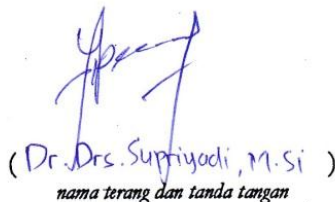 (Dr. Drs. Supriyadi, M.Si)
nama terang dan tanda tangan